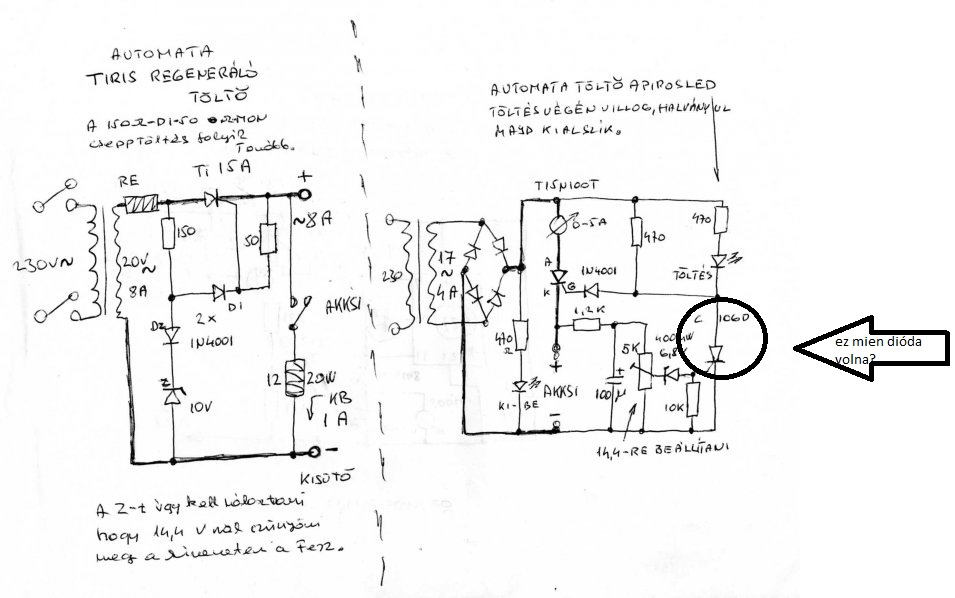 AUTOMATA
TIRIS REGENERÁLÓ
TÖLTŐ
A 150Ω-D1-50 OHMON
csepptöltés folyik
tovább.
Ti 15A
RE
+
~8A
150
50
230V~
20V
~
8A
D1
2x
D2
1N4001
Z
10V
AKKSI
12
20W
KB
1A
-
KISÜTŐ
A Z-t úgy kell
hogy 14,4 V nál
meg a a Fesz.
AUTOMATA TÖLTŐ A PIROS LED
TÖLTÉS VÉGÉN VILLOG, HALVÁNYUL
MAJD KIALSZIK.
T15N100T
0-5A
470
470
TÖLTÉS
230
17
~
4A
A
K
G
1N4001
C 106D
1,2K
5K
400mW
6,8V
470
Ω
KI-BE
+
AKKSI
-
+
100µ
10K
14,4-RE BEÁLLÍTANI
ez mien dióda
volna?